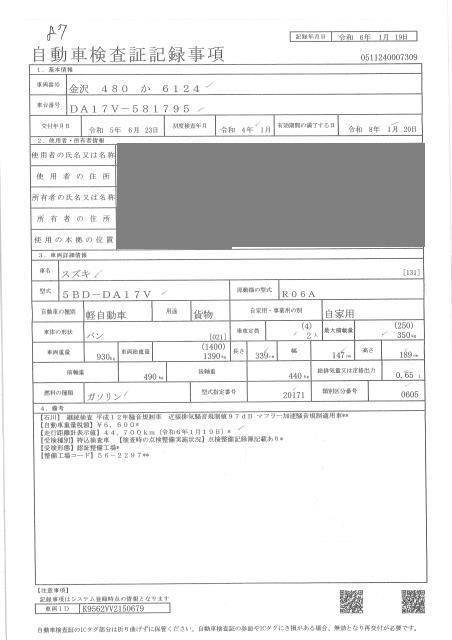 27
記録年月日 令和 6年 1月 19日
自動車検査証記録事項
0511240007309
1. 基本情報
車両番号 金沢 480 か 6124
車台番号 DA17V-581795
交付年月日 令和 5年 6月 23日 初度検査年月 令和 4年 1月 有効期間の満了する日 令和 8年 1月 20日
2. 使用者・所有者情報
使用者の氏名又は名称
使用者の住所
所有者の氏名又は名称
所有者の住所
使用の本拠の位置
3. 車両詳細情報
車名 スズキ [131]
型式 5BD-DA17V 原動機の型式 R06A
自動車の種別 軽自動車 用途 貨物 自家用・事業用の別 自家用
車体の形状 バン [021] 乗車定員 (4) 2人 最大積載量 (250) 350kg
車両重量 930kg 車両総重量 (1400) 1390kg 長さ 339cm 幅 147cm 高さ 189cm
前軸重 490kg 後軸重 440kg 総排気量又は定格出力 0.65 L
燃料の種類 ガソリン 型式指定番号 20171 類別区分番号 0605
4. 備考
【石川】 継続検査 平成12年騒音規制車 近接排気騒音規制値97dB マフラー加速騒音規制適用車**
【自動車重量税額】¥6,600*
【走行距離計表示値】44,700km (令和6年1月19日)*
【受検種別】持込検査車 【検査時の点検整備実施状況】点検整備記録簿記載あり*
【受検形態】認証整備工場*
【整備工場コード】56-2297**
【注意事項】
記録事項はシステム登録時点の情報となります
車両ID K9562YV2150679
自動車検査証のICタグ部分は折り曲げずに保管ください。自動車検査証の券面やICタグにき損がある場合、無効となり再交付が必要です。